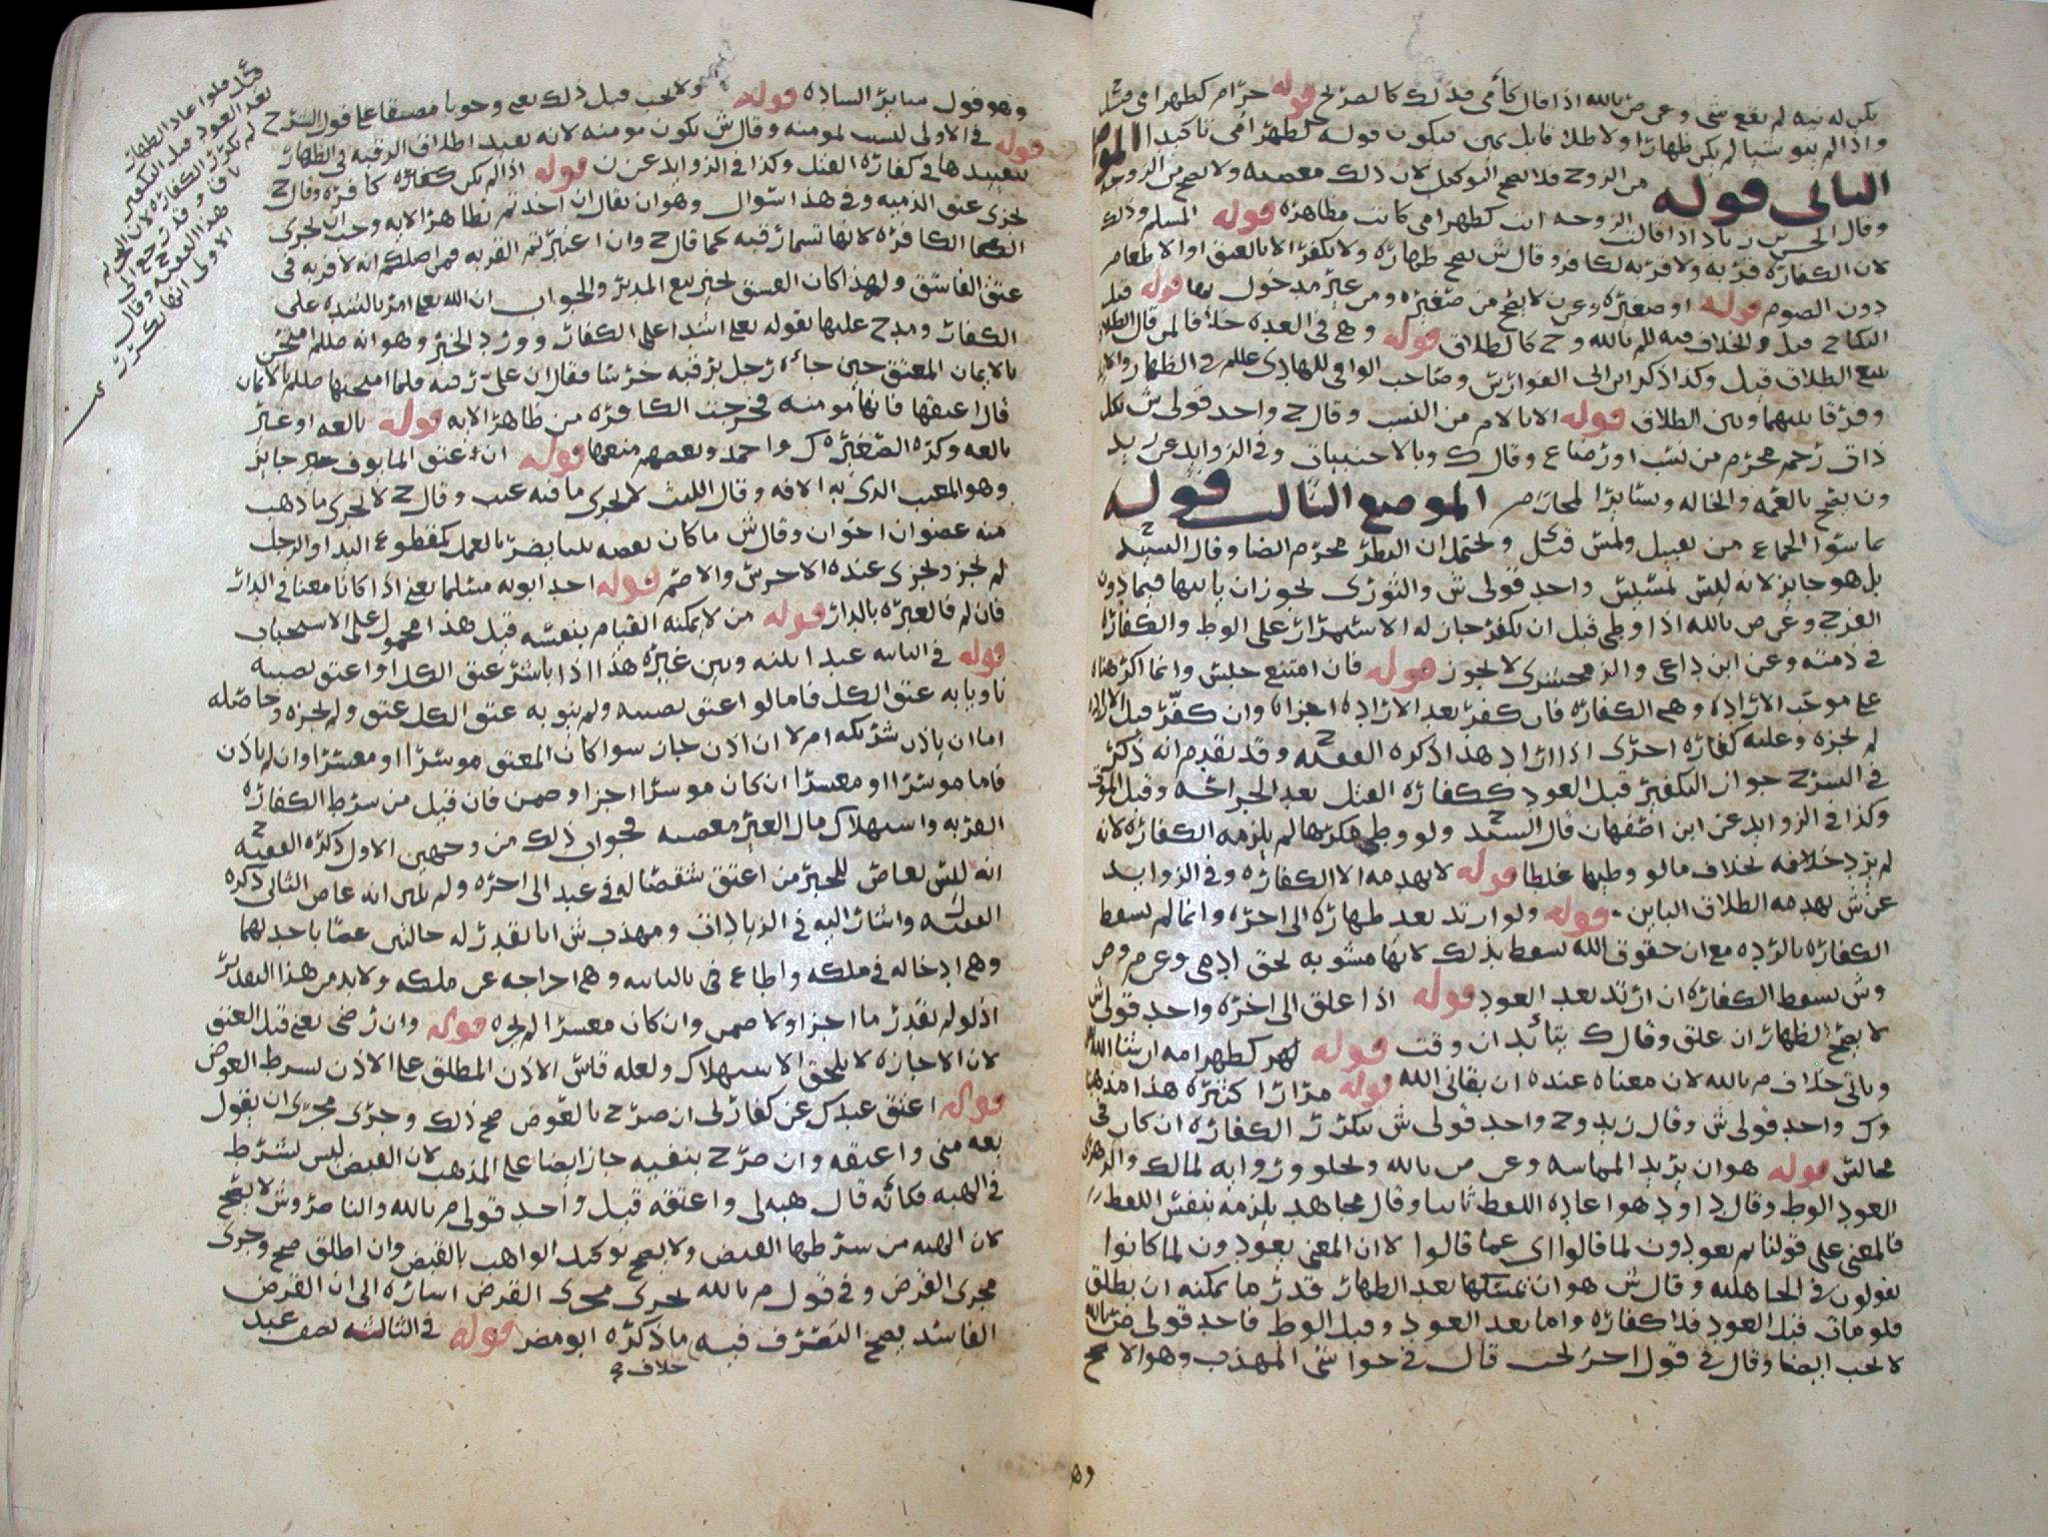 يكن له نيه لم يقع شي وعن ص بالله اذا قال كأمي فذلك كالصريح قوله حرام كظهر امي
واذا لم ينو شيا لم يكن ظهارا ولا طلاقا بل يمين فيكون قوله كظهر امي تاكيدا الموضع
الثاني قوله من الزوج فلا يصح التوكيل لان ذلك معصيه ولا يصح من الزوجه
وقال الحسن بن زياد اذا قالت الزوجه انت كظهر امي كانت مظاهره قوله المسلم وذلك
لان الكفاره قربه ولا قربه لكافر وقال ش يصح ظهاره ولا يكفر الا بالعتق او الاطعام
دون الصوم قوله او صغيره وعن لا يصح من صغيره ومن غير مدخول بها قوله قبل
النكاح قيل والخلاف فيه للم بالله وح كالطلاق قوله وهي في العده خلافا لمن قال الطلاق
يتبع الطلاق قيل وكذا ذكر ابن ابي الفوارس وصاحب الوافي للهادي عللم في الظهار
وفرقا بينهما وبين الطلاق قوله الا بالام من النسب وقال ح واحد قولي ش بكل
ذات رحم محرم من نسب او رضاع وقال ك وبالاجنبيات وفي الزوايد عن زيد
ون يصح بالعمه والخاله وسائر المحارم الموضع الثالث قوله
عما سوا الجماع من تقبيل ولمس قيل ويحتمل ان النظر محرم ايضا وقال السيد
بل هو جايز لانه ليس لمسيس واحد قولي ش والثوري يجوز ان ياتيها فيما دون
الفرج وعن ص بالله اذا وطي قبل ان يكفر جاز له الاستمرار على الوطء والكفاره
في ذمته وعن ابن داعي والزمخشري لا يجوز قوله فان امتنع حبس وانما اكره هنا
على موجب الاراده وهي الكفاره فان كفر بعد الاراده اجزاه وان كفر قبل الاراده
لم يجزه وعليه كفاره اخرى اذا اراد هذا ذكره الفقيه ح وقد تقدم انه ذكر
في الشرح جواز التكفير قبل العود ككفاره القتل بعد الجراحه وقيل
وكذا في الزوايد عن ابن اصفهان قال السيد ح ولو وطي مكرها لم يلزمه الكفاره لانه
لم يرد خلافه بخلاف ما لو وطيها غلطا قوله لا يهدمه الا الكفاره وفي الزوايد
عن ش يهدمه الطلاق الباين قوله ولو ارتد بعد ظهاره الى اخره وانما لم يسقط
الكفاره بالرده مع ان حقوق الله يسقط بذلك لانها مشوبه بحق ادمي وعن م وص
وش يسقط الكفاره ان ارتد بعد العود قوله اذا علق الى اخره واحد قولي ش
لا يصح الظهار ان علق وقال ك يتأبد ان وقت قوله لهو كظهر امه ان شا الله
وياتي خلاف م بالله لان معناه عنده ان بقاني الله قوله مرارا كثيره هذا مذهبنا
وك واحد قولي ش وقال زيد وح واحد قولي ش يتكرر الكفاره ان كان في
مجالس قوله هو ان يريد المماسه وعن ص بالله ويخلو ورواية لمالك والزهري
العود الوطء وقال داود هو اعاده اللفظ ثانيا وقال مجاهد يلزمه بنفس اللفظ
فالمعنى على قولنا ثم يعودون لما قالوا اي عما قالوا لا ان المعنى يعودون لما كانوا
يقولون في الجاهليه وقال ش هو ان يمسكها بعد الظهار قدر ما يمكنه ان يطلق
فلو مات قبل العود فلا كفاره واما بعد العود وقبل الوطء فاحد قولي ص بالله
لا يجب ايضا وقال في قول اخر يجب قال في حواشي المهذب وهو الاصح
وهو قول سائر الساده قوله ولا يجب قبل ذلك يعني وجوبا مضيقا على قول الشرح
قوله في الاولى ليست لمومنه وقال ش يكون مومنه لانه يقيد اطلاق الرقبه في الظهار
بتقييدها في كفاره القتل وكذا في الزوايد عن ن قوله اذا لم يكن كفاره كافره وقال ح
يجزى عتق الذميه وفي هذا سوال وهو ان يقال ان اخذتم بظاهر الايه وجب ان يجزى
الكافره لانها تسما رقبه كما قال ح وان اعتبرتم القربه فمن اصلكم انه لا قربه في
عتق الفاسق ولهذا كان الفسق يجيز بيع المدبر والجواب ان الله تعالى امر بالشده على
الكفار ومدح عليها بقوله تعالى اشدا على الكفار وورد الخبر وهو انه صللم امتحن
بالايمان المعتق حين جاءه رجل برقبه خرسا فقال ان علي رقبه فلما امتحنها صللم بالايمان
قال اعتقها فانها مومنه فخرجت الكافره من ظاهر الايه قوله بالغه او غير
بالغه وكره الصغيره ك واحمد وبعضهم منعها قوله ان عتق المايوف غير جايز
وهو المعيب الذي به الافه وقال الليث لا يجزى ما فيه عيب وقال ح لا يجزى ما ذهب
منه عضوان اخوان وقال ش ما كان نقصه بينا يضر بالعمل كمقطوع اليد او الرجل
لم يجز ويجزى عنده الاخرس والاصم قوله احد ابويه مسلما يعني اذا كانا معنا في الدار
فان لم فالعبره بالدار قوله من لا يمكنه القيام بنفسه قيل هذا محمول على الاستحباب
قوله في الثانيه عبدا بينه وبين غيره هذا اذا باشر عتق الكل او اعتق نصيبه
ناويا به عتق الكل فاما لو اعتق نصيبه ولم ينو به عتق الكل عتق ولم يجزه وحاصله
اما ان ياذن شريكه ام لا ان اذن جاز سوا كان المعتق موسرا او معسرا وان لم ياذن
فاما موسرا او معسرا ان كان موسرا اجزا وضمن فان قيل من شرط الكفاره
القربه واستهلاك مال الغير معصيه فجواب ذلك من وجهين الاول ذكره الفقيه ح
انه ليس بعاص للخبر من اعتق شقصا له في عبد الى اخره ولم يبين انه عاص الثاني ذكره
الفقيه واشار اليه في الزيادات ومهذب ش انا نقدر له حالتين عصا باحديهما
وهي ادخاله في ملكه واطاع في الثانيه وهي اخراجه عن ملكه ولا بد من هذا التقدير
اذ لو لم نقدر ما اجزا ولا ضمن وان كان معسرا لم يجزه قوله وان رضي يعني قبل العتق
لان الاجازه لا يلحق الاستهلاك ولعله قاس الاذن المطلق على الاذن بشرط العوض
قوله اعتق عبدك عن كفارتي ان صرح بالعوض صح ذلك وجرى مجرى ان يقول
بعه مني واعتقه وان صرح بنفيه جاز ايضا على المذهب لان القبض ليس بشرط
في الهبه فكأنه قال هبه لي واعتقه قيل واحد قولي م بالله والناصر وش لا يصح
لان الهبه من شرطها القبض ولا يصح توكيل الواهب بالقبض وان اطلق صح وجرى
مجرى القرض وفي قول م بالله يجرى مجرى القرض اشاره الى ان القرض
الفاسد يصح التصرف فيه ما ذكره ابو مضر قوله في الثالثه نصف عبد
خلاف
قيل فلو اعاد الظهار
بعد العود قبل التكفير
لم تكرر الكفاره لان الحرمه
باقيه وقد رجع الى
هذا الفقيه وقال
الاولى انها تكرر